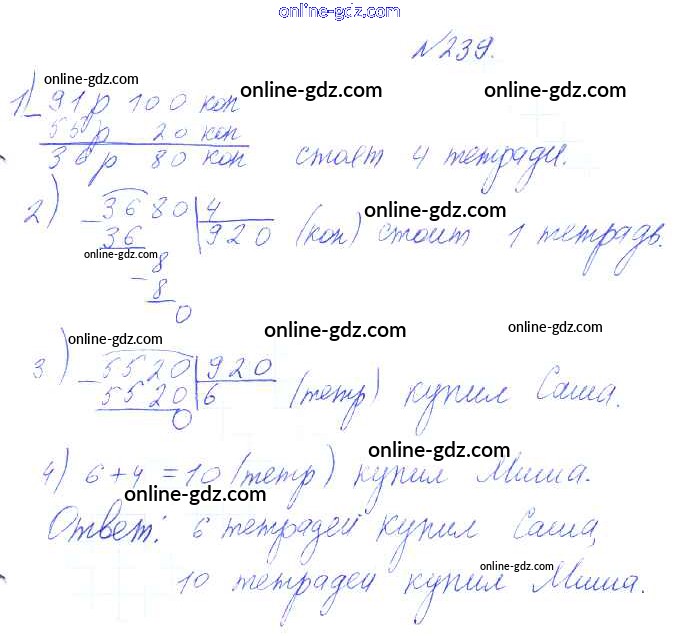 online-gdz.com
№239.
online-gdz.com online-gdz.com online-gdz.com
1) _ 91 р 100 коп
55 р 20 коп
36 р 80 коп стоят 4 тетради.
online-gdz.com
2) _ 3680 | 4
36 | 920 (коп) стоит 1 тетрадь.
online-gdz.com
8
_ 8
0
online-gdz.com online-gdz.com online-gdz.com
3) _ 5520 | 920
5520 | 6 (тетр) купил Саша.
0
online-gdz.com
4) 6 + 4 = 10 (тетр) купил Миша.
online-gdz.com
Ответ: 6 тетрадей купил Саша,
online-gdz.com
10 тетрадей купил Миша.